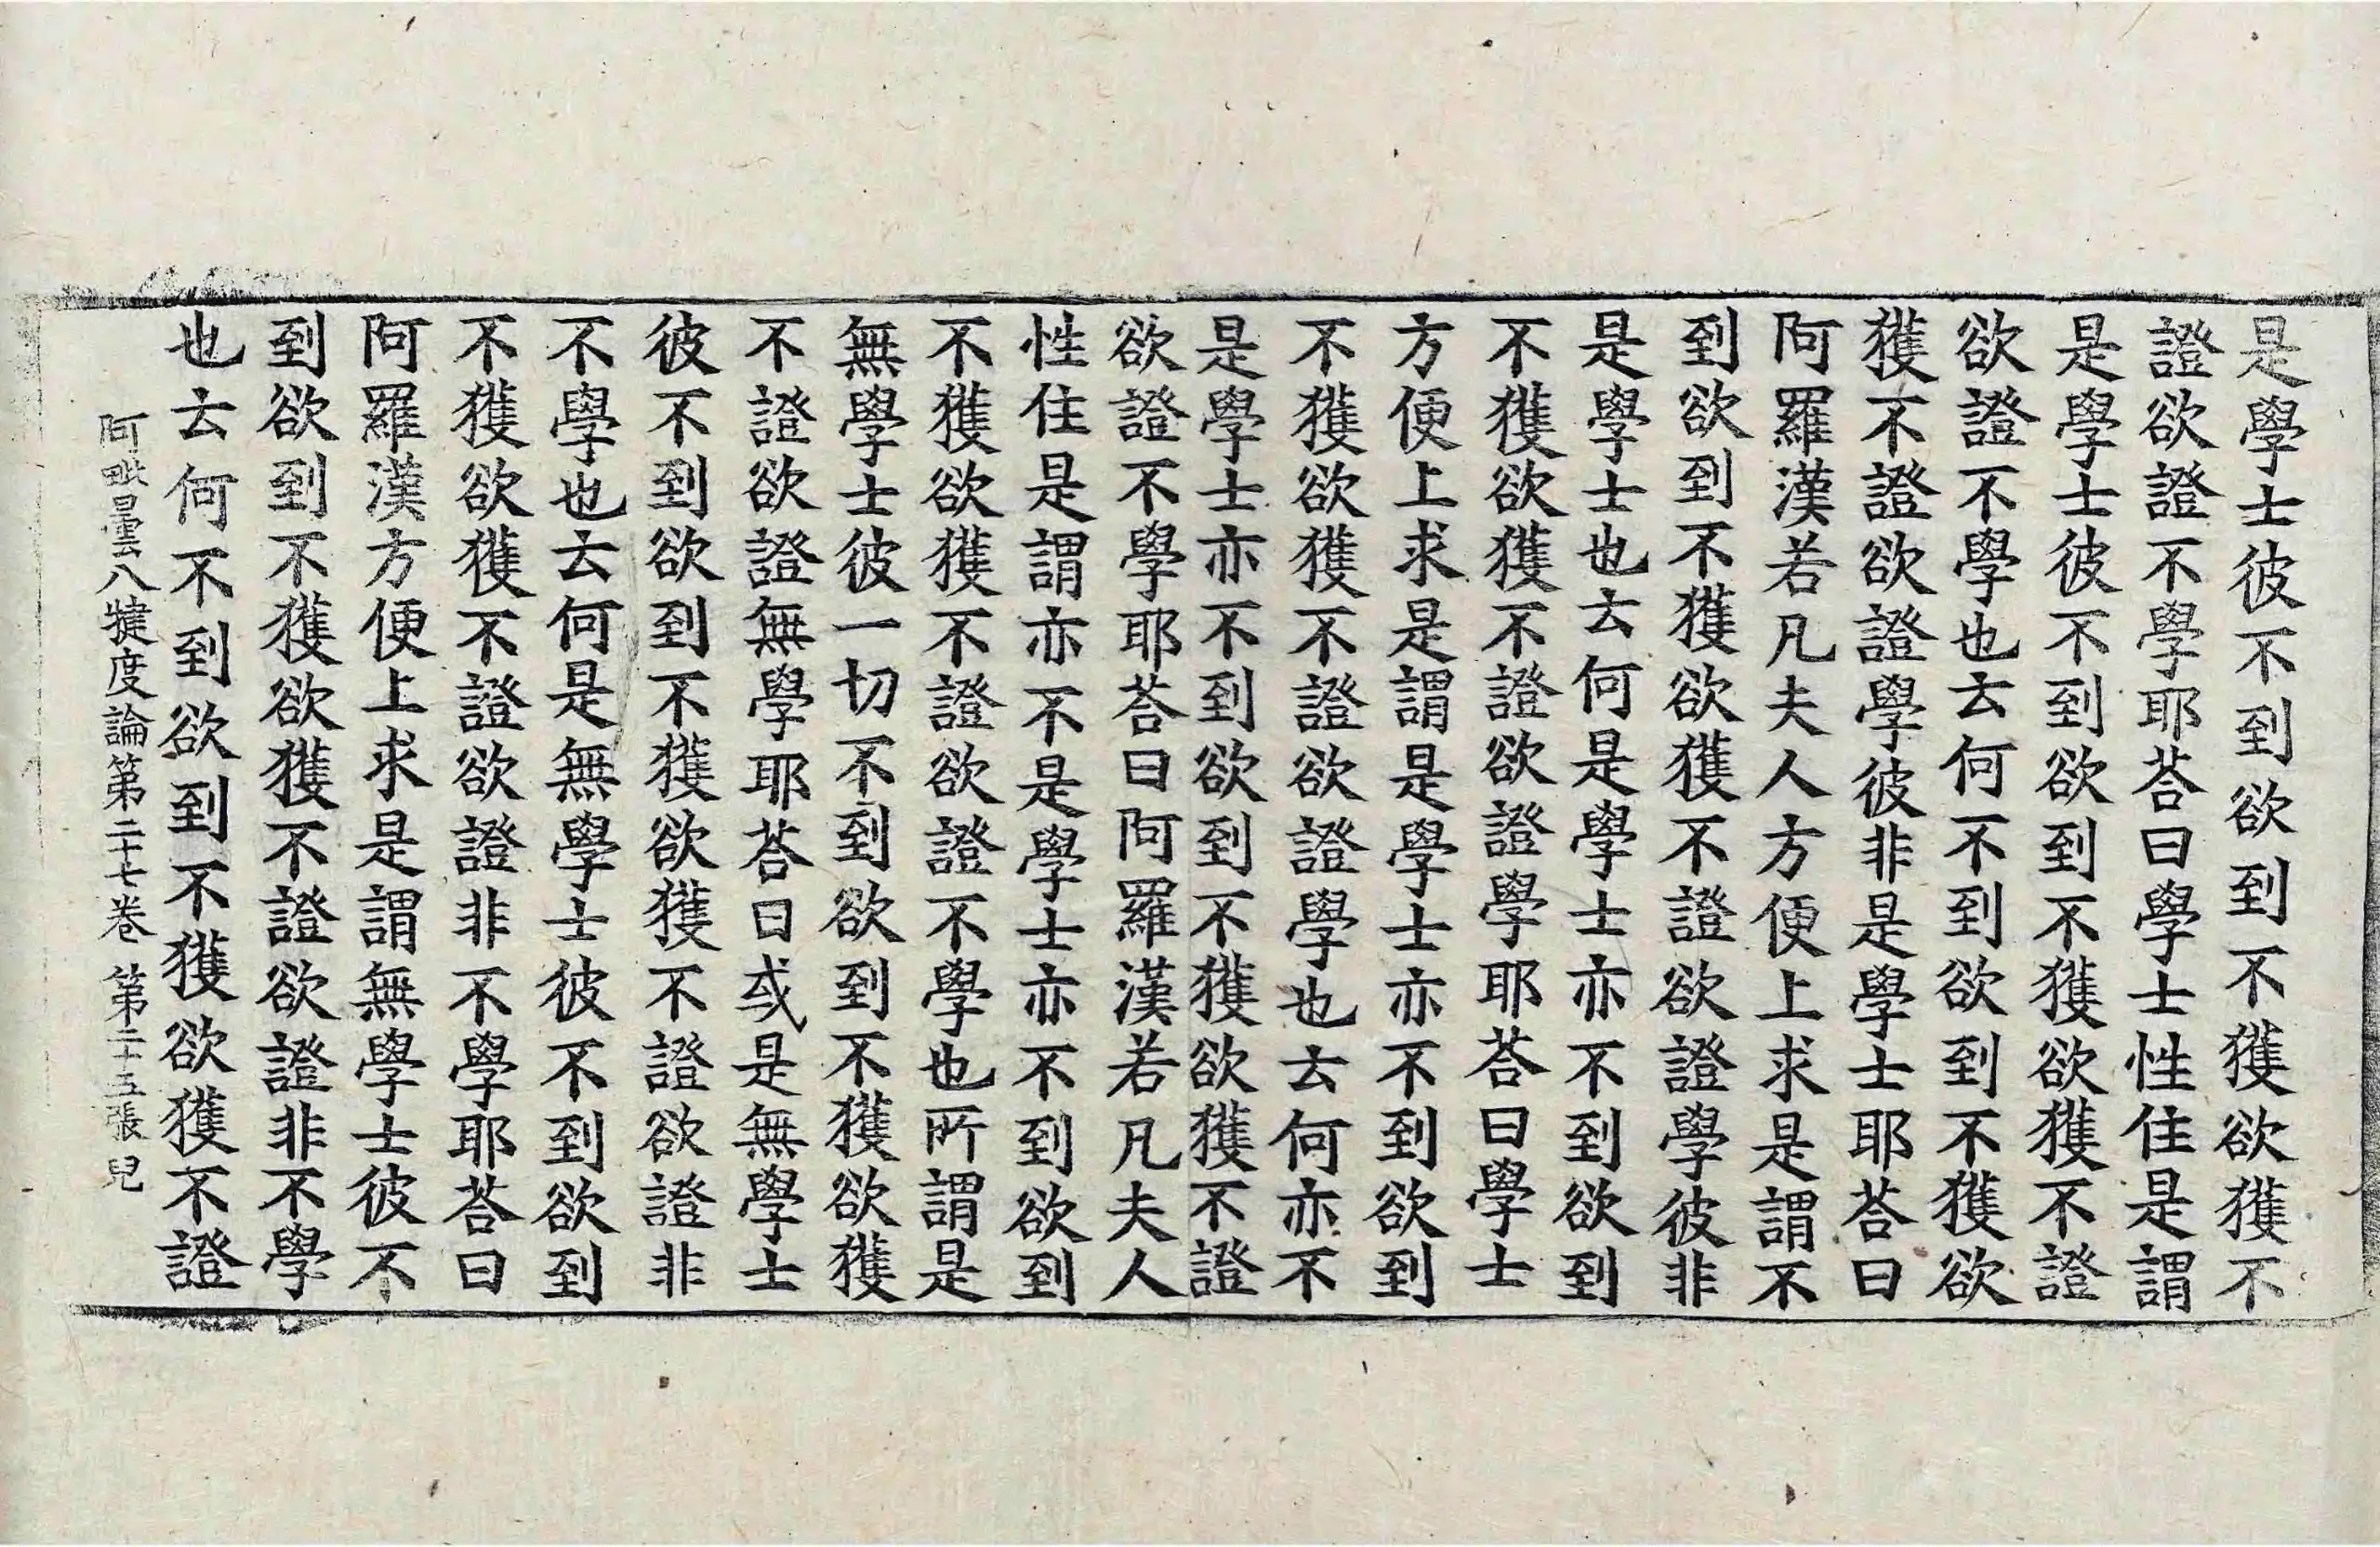 是學士彼不到欲到不獲欲獲不
證欲證不學耶荅曰學士性住是謂
是學士彼不到欲到不獲欲獲不證
欲證不學也云何不到欲到不獲欲
獲不證欲證學彼非是學士耶荅曰
阿羅漢若凡夫人方便上求是謂不
到欲到不獲欲獲不證欲證學彼非
是學士也云何是學士亦不到欲到
不獲欲獲不證欲證學耶荅曰學士
方便上求是謂是學士亦不到欲到
不獲欲獲不證欲證學也云何亦不
是學士亦不到欲到不獲欲獲不證
欲證不學耶荅曰阿羅漢若凡夫人
性住是謂亦不是學士亦不到欲到
不獲欲獲不證欲證不學也所謂是
無學士彼一切不到欲到不獲欲獲
不證欲證無學耶荅曰或是無學士
彼不到欲到不獲欲獲不證欲證非
不學也云何是無學士彼不到欲到
不獲欲獲不證欲證非不學耶荅曰
阿羅漢方便上求是謂無學士彼不
到欲到不獲欲獲不證欲證非不學
也云何不到欲到不獲欲獲不證
阿毗曇八犍度論第二十七卷 第二十五張 皃